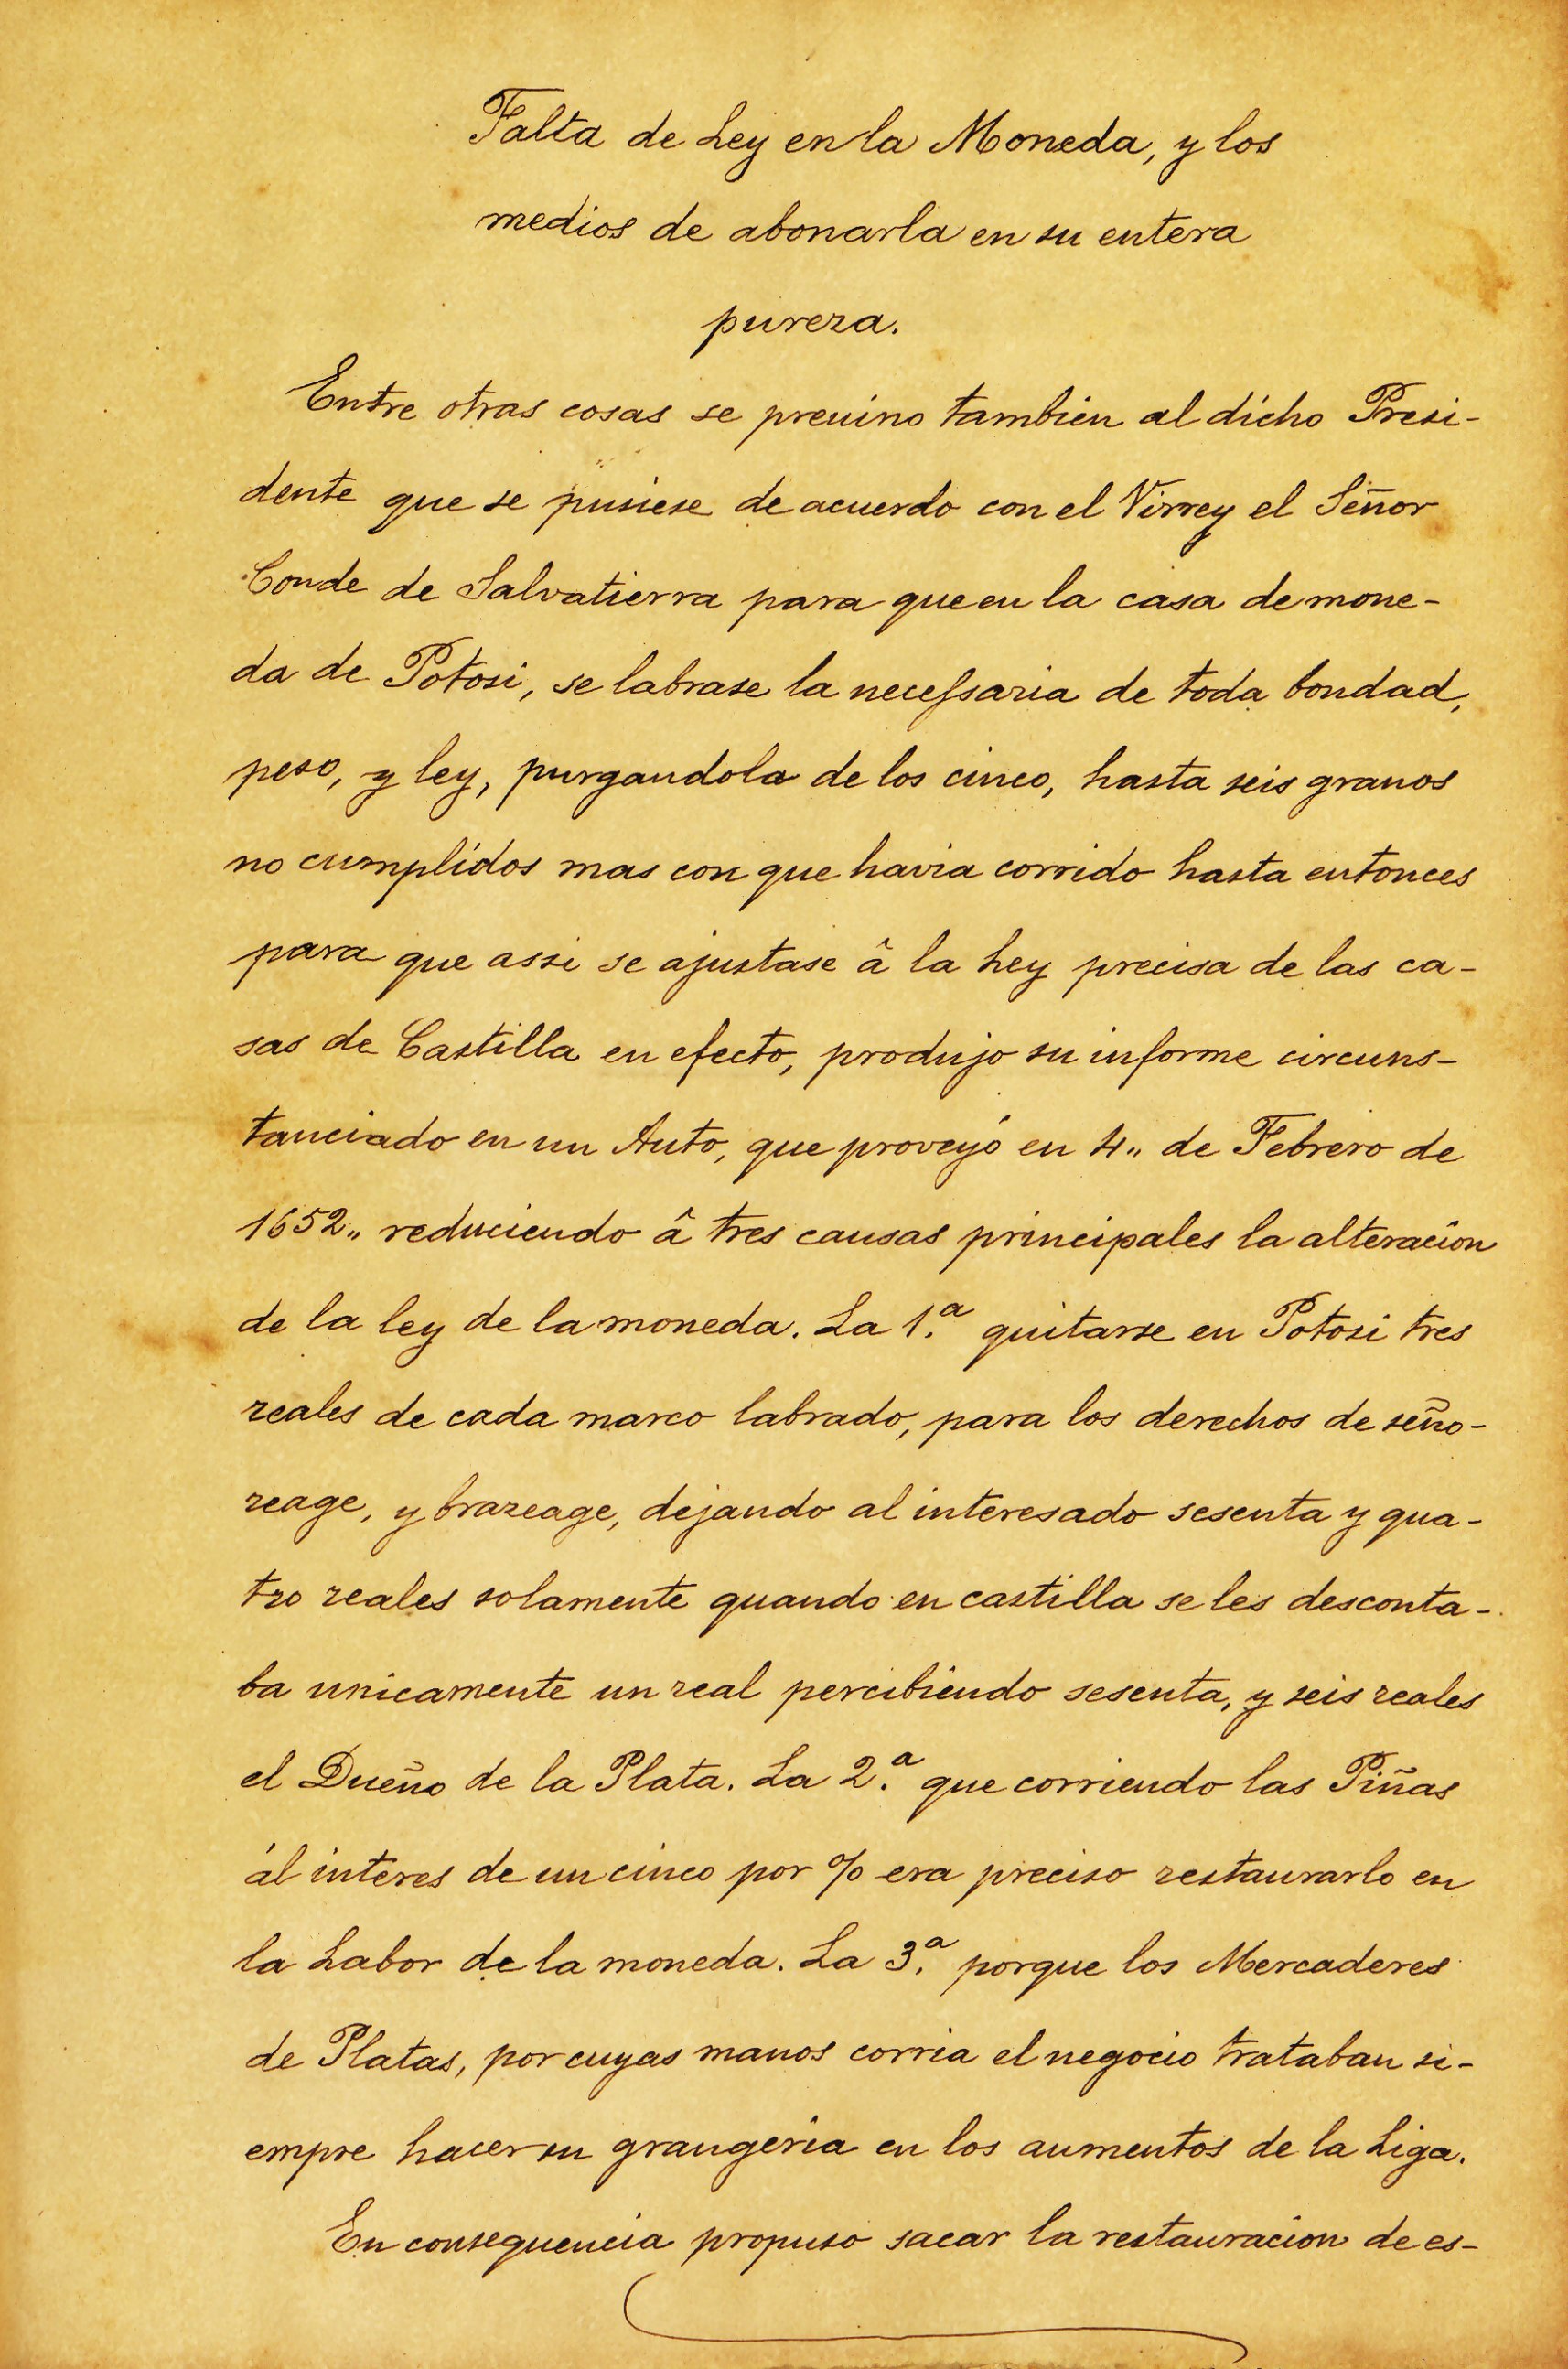 Falta de Ley en la Moneda, y los
medios de abonarla en su entera
pureza.
Entre otras cosas se previno tambien al dicho Presi-
dente que se pusiese de acuerdo con el Virrey el Señor
Conde de Salvatierra para que en la casa de mone-
da de Potosi, se labrase la necessaria de toda bondad,
peso, y ley, purgandola de los cinco, hasta seis granos
no cumplidos mas con que havia corrido hasta entonces
para que assi se ajustase â la Ley precisa de las ca-
sas de Castilla en efecto, produjo su informe circuns-
tanciado en un Auto, que proveyó en 4,, de Febrero de
1652,, reduciendo â tres causas principales la alteracion
de la ley de la moneda. La 1.ª quitarse en Potosi tres
reales de cada marco labrado, para los derechos de seño-
reage, y brazeage, dejando al interesado sesenta y qua-
tro reales solamente quando en castilla se les desconta-
ba unicamente un real percibiendo sesenta, y seis reales
el Dueño de la Plata. La 2.ª que corriendo las Piñas
ál interes de un cinco por % era preciso restaurarlo en
la Labor de la moneda. La 3.ª porque los Mercaderes
de Platas, por cuyas manos corria el negocio trataban si-
empre hacer su grangeria en los aumentos de la Liga.
En consequencia propuso sacar la restauracion de es-